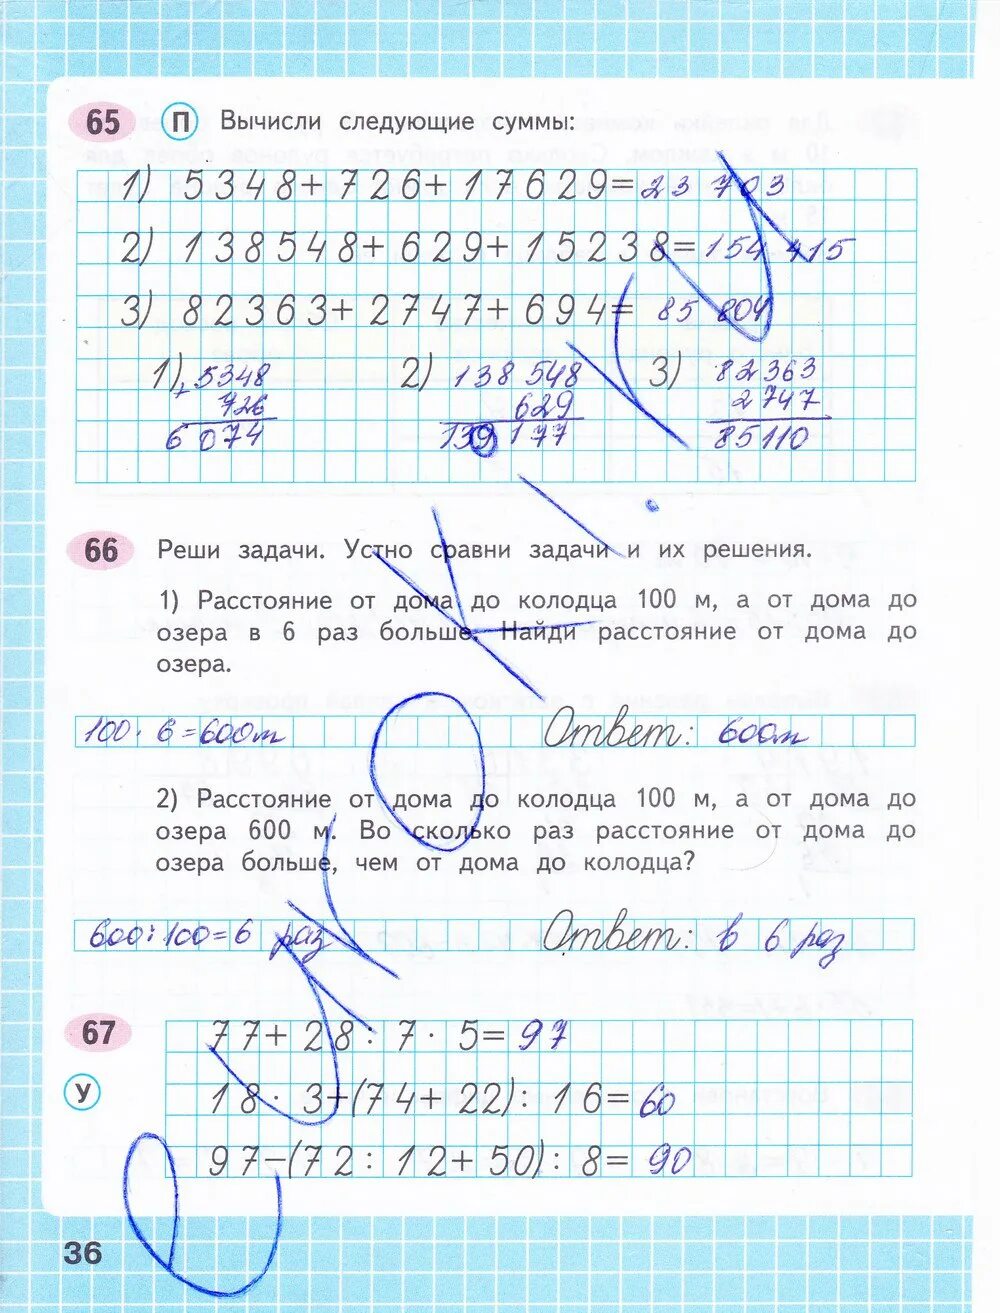 65 П Вычисли следующие суммы:
1) 5348+726+17629=23 703
2) 138548+629+15238=154 415
3) 82363+2747+694= 85 804
1) + 5348 2) 138 548 3) 82 363
726 629 2 747
6 074 139 177 85110
66 Реши задачи. Устно сравни задачи и их решения.
1) Расстояние от дома до колодца 100 м, а от дома до
озера в 6 раз больше. Найди расстояние от дома до
озера.
100 · 6 = 600м Ответ: 600м
2) Расстояние от дома до колодца 100 м, а от дома до
озера 600 м. Во сколько раз расстояние от дома до
озера больше, чем от дома до колодца?
600:100=6 раз Ответ: в 6 раз
67 77+28:7·5=97
У 18·3+(74+22):16=60
97-(72:12+50):8=90
36